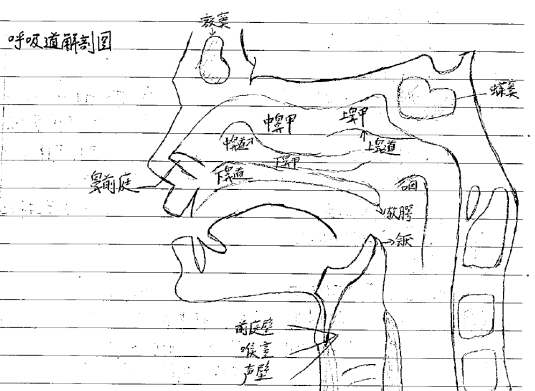 呼吸道解剖图
额窦
蝶窦
中鼻甲
上鼻甲
中鼻道
上鼻道
下鼻甲
下鼻道
鼻前庭
咽
软腭
前庭壁
喉室
声壁